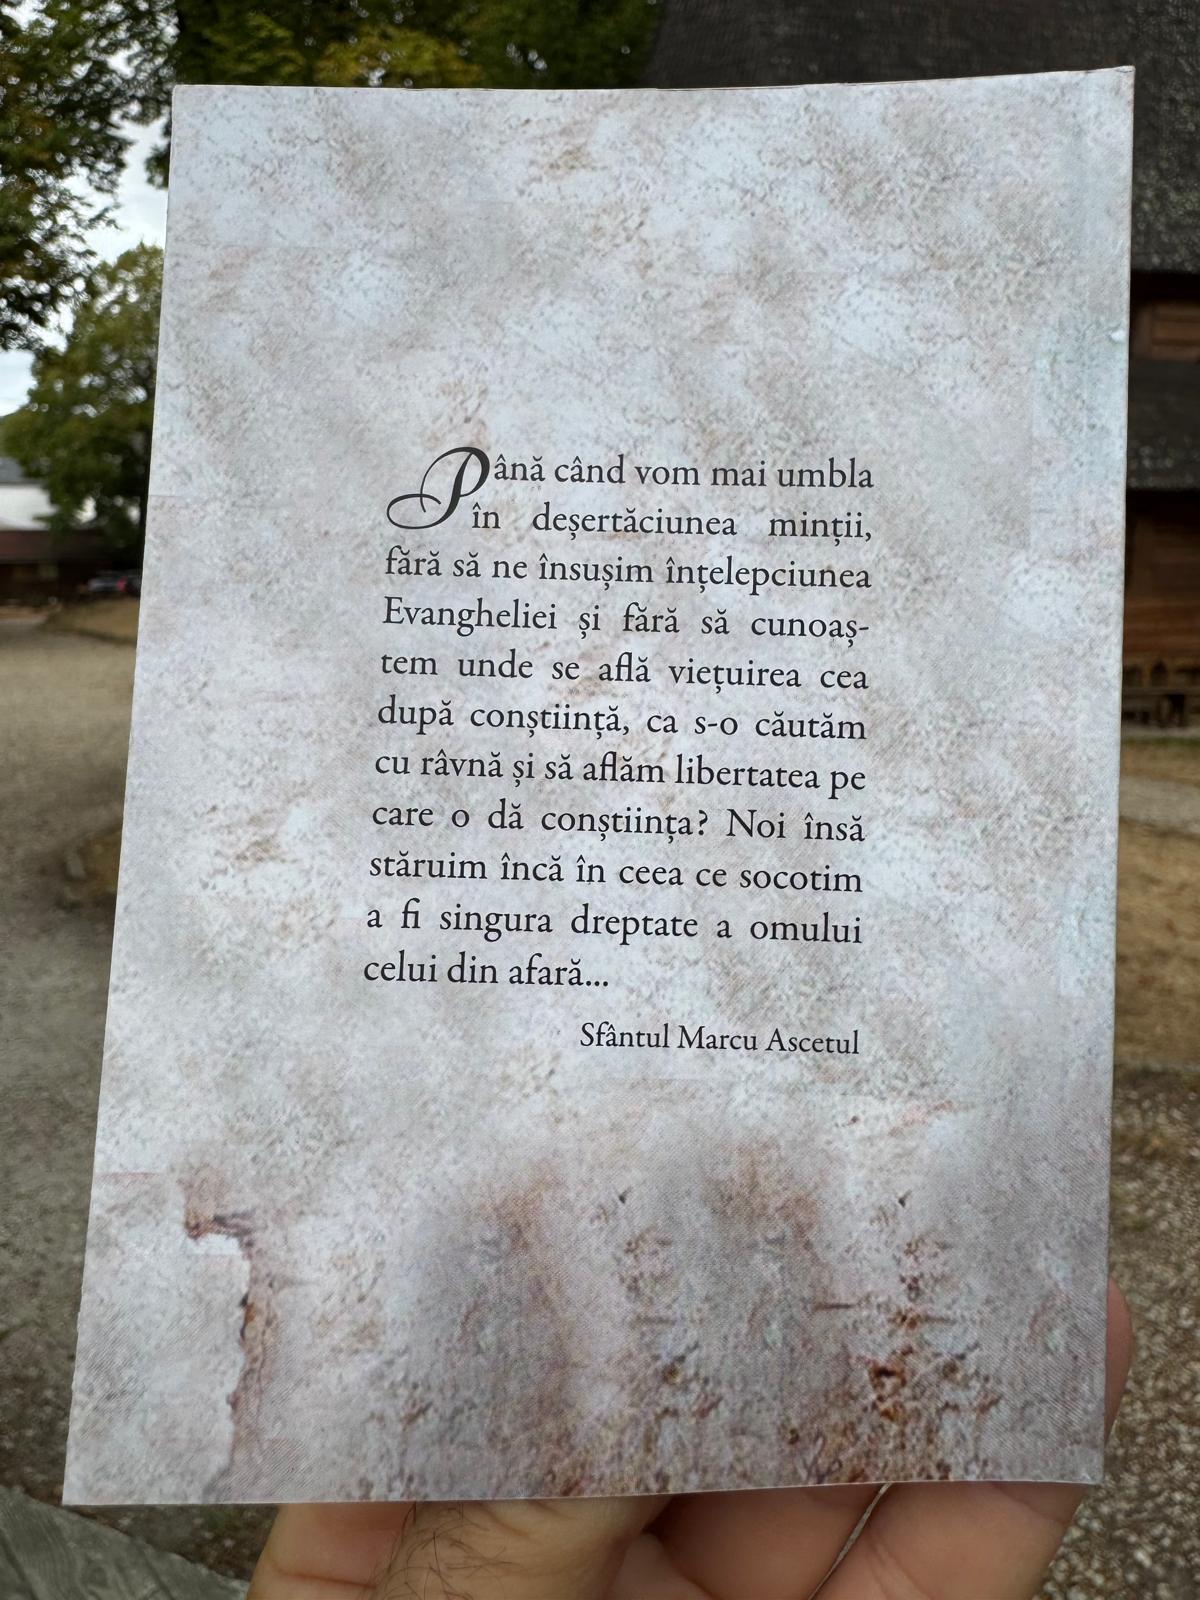 Până când vom mai umbla
în deșertăciunea minții,
fără să ne însușim înțelepciunea
Evangheliei și fără să cunoaș-
tem unde se află viețuirea cea
după conștiință, ca s-o căutăm
cu râvnă și să aflăm libertatea pe
care o dă conștiința? Noi însă
stăruim încă în ceea ce socotim
a fi singura dreptate a omului
celui din afară...
Sfântul Marcu Ascetul